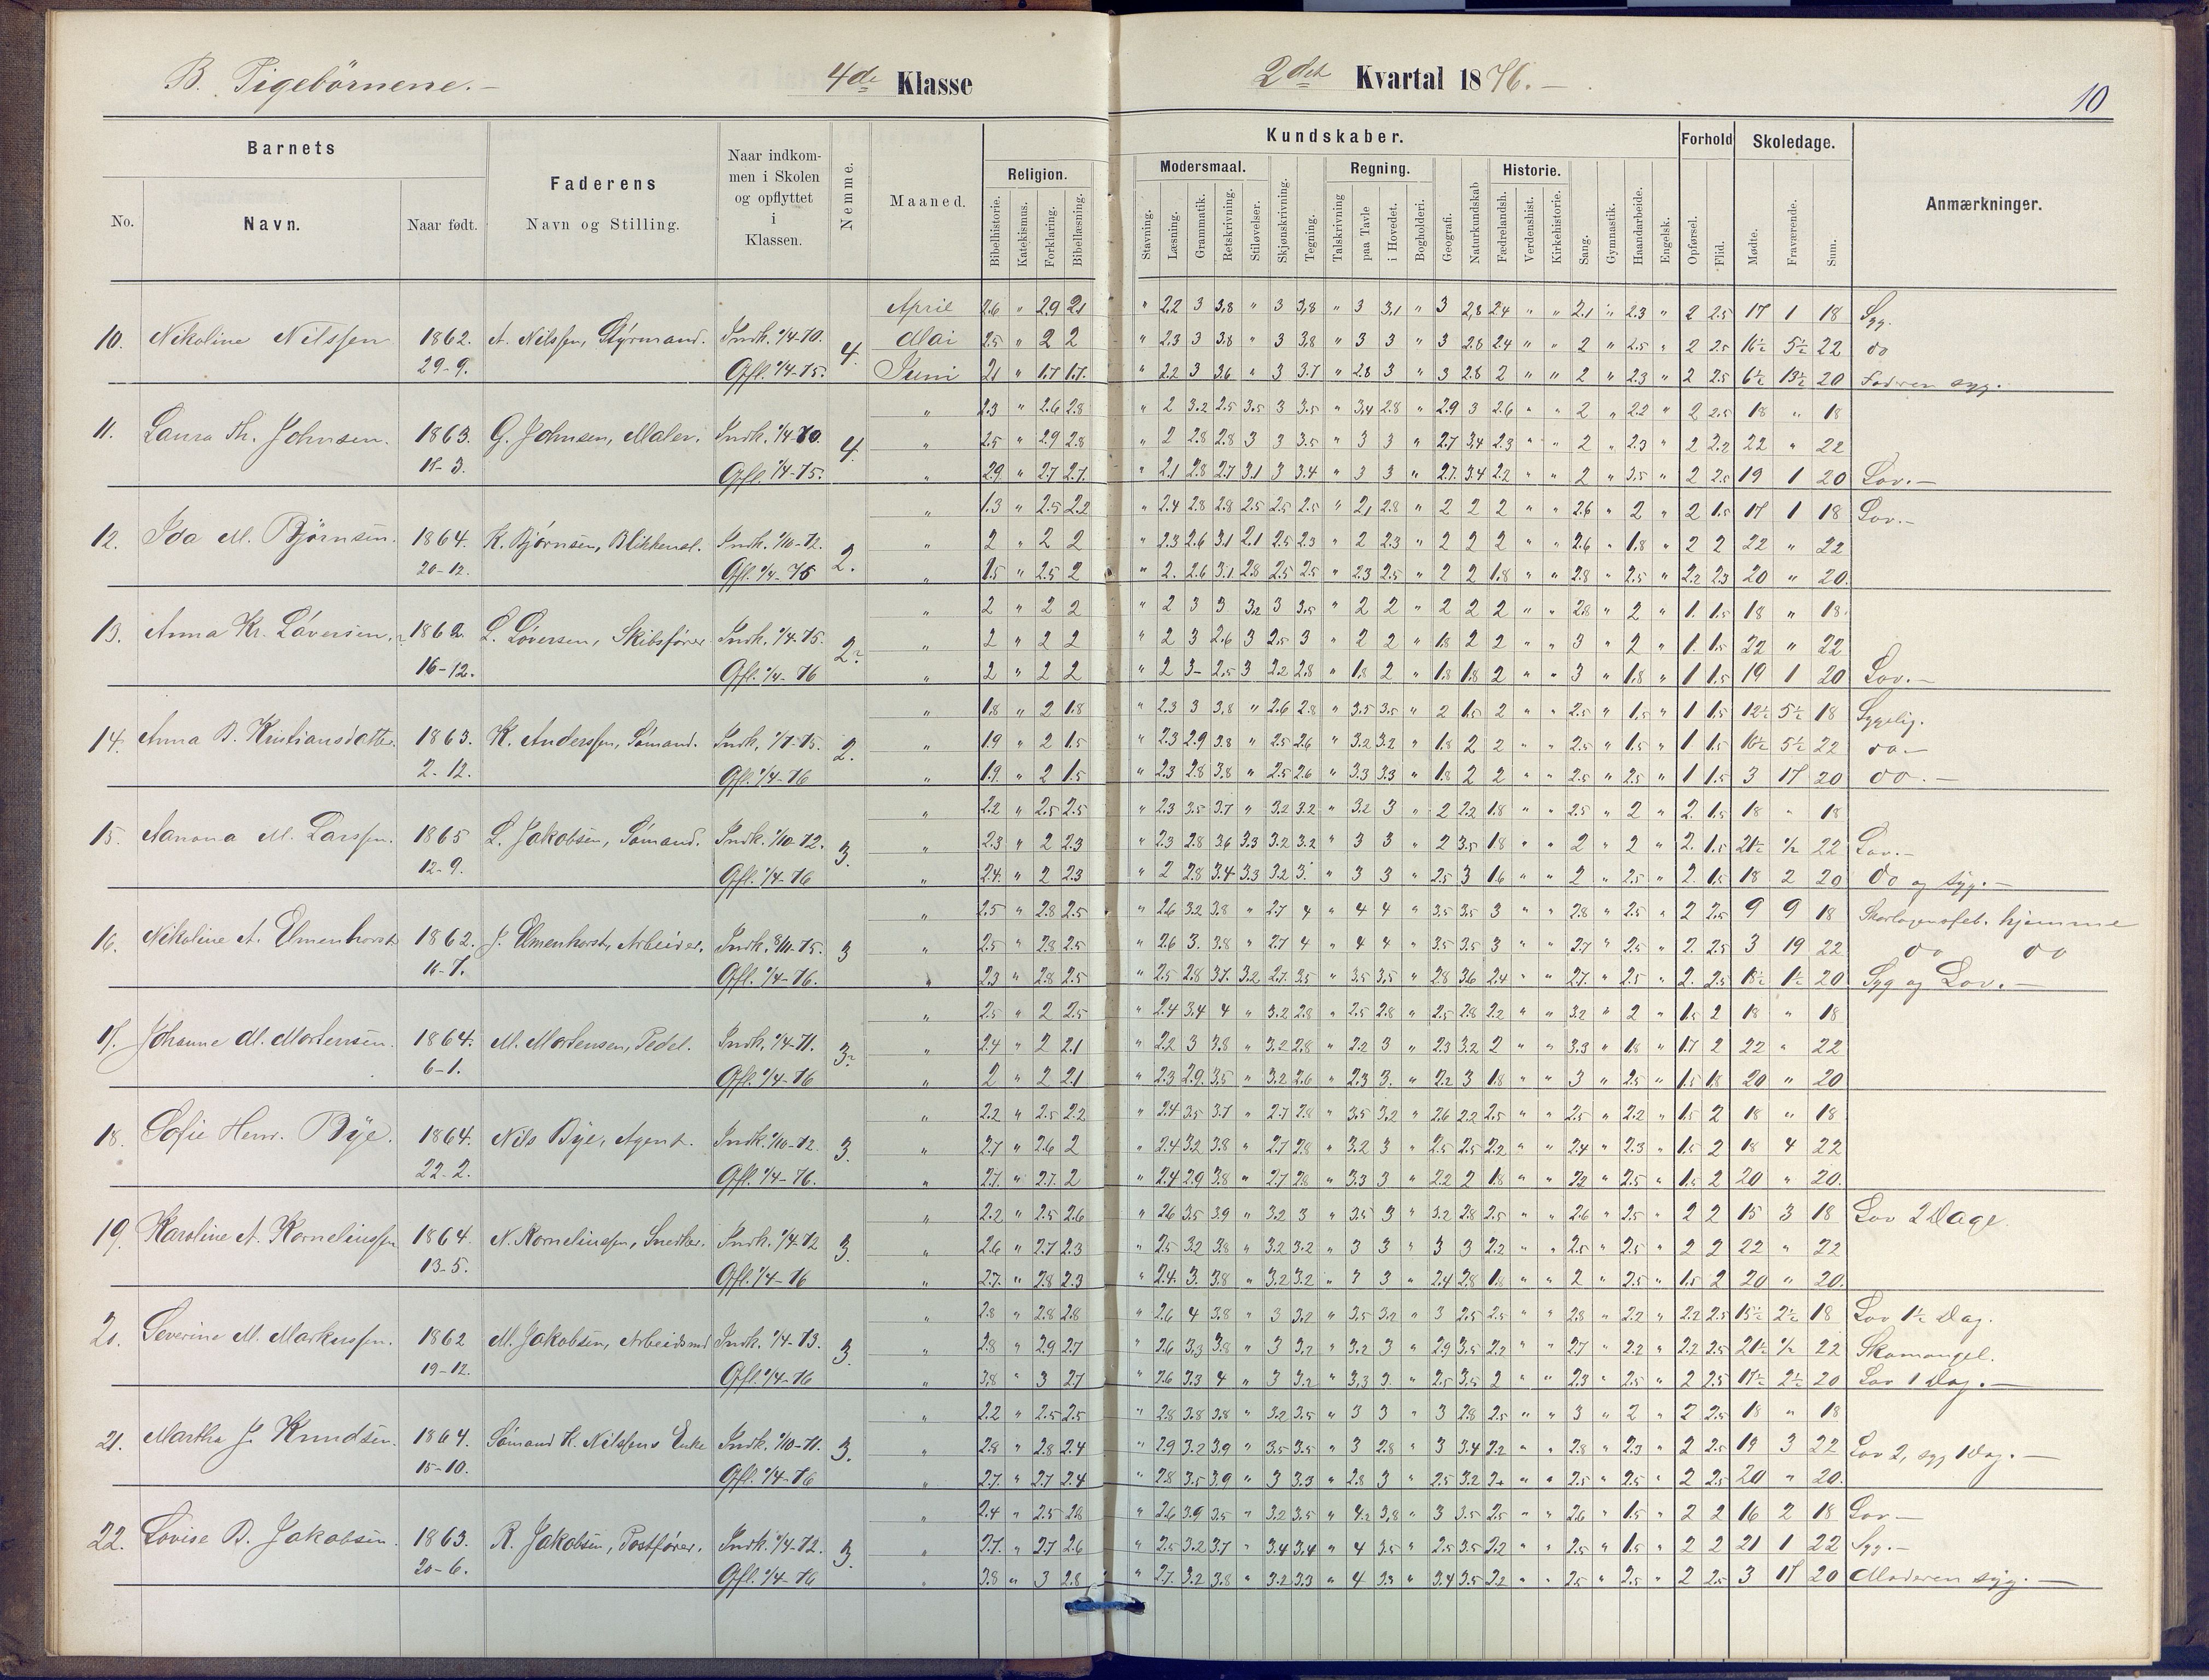 B. Pigebörnene.-
4de Klasse
2det Kvartal 1876.-
10
Barnets
No.
Navn.
Naar født.
Faderens
Navn og Stilling.
Naar indkom-
men i Skolen
og opflyttet
i
Klassen.
Nemme.
Maaned.
Religion.
Bibelhistorie.
Katekismus.
Forklaring.
Bibellæsning.
Kundskaber.
Modersmaal.
Stavning.
Læsning.
Grammatik.
Retskrivning.
Stiløvelser.
Skjønskrivning.
Tegning.
Regning.
Talskrivning
paa Tavle
i Hovedet.
Bogholderi.
Geografi.
Naturkundskab
Historie.
Fædrelandsh.
Verdenshist.
Kirkehistorie.
Sang.
Gymnastik.
Haandarbeide.
Engelsk.
Forhold
Opførsel.
Flid.
Skoledage.
Mødte.
Fraværende.
Sum.
Anmærkninger.
April 2.6 " 2.9 2.1 " 2.2 3 3.8 " 3 3,8 " 3 3,1 " 3 2,8 2.4 " " 2.1 " 2.3 " 2 2.5 17 1 18 Syg.
10. Nikoline Nilssen 1862. A. Nilssen, Styrmand. Indk. 1/4-70. 4. Mai 2.5 " 2 2 " 2.3 3 3.8 " 3 3.8 " 3 3 " 3 2.8 2.4 " " 2 " 2.5 " 2 2.5 16½ 5½ 22 do
29-9. Opfl. 1/4-75. Juni 2.1 " 1.7 1.7. " 2.2 3 3.6 " 3 3.7 " 2.8 3 " 3 2.8 2 " " 2 " 2.3 " 2 2.5 6½ 13½ 20 syg.
" 2.3 " 2.6 2.8 " 2 3.2 2.5 3.5 3 3.5 " 3,4 2.8 " 2.9 3 2.6 " " 2 " 2.2 " 2 2.5 18 " 18
11. Laura Th. Johnsen. 1863. G. Johnsen, Maler. Indk. 1/4-70. 4. " 2.5 " 2.9 2.8 " 2 2.8 2.8 3 3 3.5 " 3 3 " 2.7 3,4 2.3 " " 2 " 2.3 " 2 2.2 22 " 22
Opfl. 1/4-75. " 2.9. " 2.7 2.7. " 2.1 2.8 2.7 3.1 3 3.4 " 3 3 " 2.7. 3.4 2.2 " " 2 " 3,5 " 2 2.5 19 1 20 Lov.-
" 1.3 " 2.5 2.2 " 2.4 2.8 2.8 2.5 2.5 2.5 " 2,1 2.8 " 2 2 2 " " 2.6 " 2 " 2 1.5 17 1 18 Lov.-
12. Ida M. Bjørnsen. 1864. K. Bjørnsen, Blikkensl. Indk. 1/10-72. 2. " 2 " 2 2 " 2.3 2.6 3.1 2.1 2.5 2.3 " 2 2.3 " 2 2 2 " " 2.6 " 1.8 " 2 2 22 " 22
20-12. Opfl. 1/4-75 " 1.5 " 2.5 2 " 2. 2.6 3.1 2.8 2.5 2.5 " 2.3 2.5 " 2 2 1.8 " " 2.8 " 2.5 " 2.2 2.3 20 " 20.
" 2 " 2 2 " 2 3 3 3.2 3 3.5 " 2 2 " 2 2 2 " " 2.8 " 2 " 1. 1.5 18 " 18.
13. Anna Kr. Løversen. 1862. L. Løversen, Skibsfører Indk. 1/4-75. 2? " 2 " 2 2 " 2 3 2.6 3 2.5 3 " 2 2 " 1.8 2 2 " " 3 " 2 " 1. 1.5 22 " 22
16-12. Opfl. 1/4-76 " 2 " 2 2 " 2 3- 2.5 3 2.2 2.8 " 1.8 2 " 1.8 1.8 2 " " 3 " 1.8 " 1 1.5 19 1 20 Lov.-
" 1.8 " 2 1.8 " 2.3 3 3,8 " 2.6 2.8 " 3.5 3.5 " 2 1.5 2 " " 2.5 " 1.5 " 1 1.5 12½ 5½ 18 Sygelig.
14. Anna B. Kristiansdatter. 1863. K. Anderssen, Sømand. Indk. 1/7-75. 2. " 1.9 " 2 1.5 " 2.3 2.9 3.8 " 2.5 2.6 " 3.2 3.2 " 1.8 2 2 " " 2.5 " 1.5 " 1 1.5 16½ 5½ 22 do.-
2.12. Opfl. 1/4-76 " 1.9. " 2 1.5 " 2.3 2.8 3.8 " 2.5 2.6 " 3.3 3.3 " 1.8 2 2 " " 2.5 " 2.5 " 1 1.5 3 17 20 do.-
" 2.2 " 2.5 2.5 " 2.3 3.5 3.7 " 3.2 3.2 " 3.2 3 " 2 2.2 1.8 " " 2.5 " 2 " 2. 1.5 18 " 18
15. Aanona M. Larssen. 1865 L. Jakobsen, Sømand. Indk. 1/10-72. 3. " 2.3 " 2 2.3 " 2.3 2.8 3.6 3.3 3.2 3.2 " 3 3 " 2 3.5 1.8 " " 2 " 2 " 2. 1.5 21½ ½ 22 Lov.-
12-9. Opfl. 1/4-76 " 2.4. " 2 2.3 " 2 2.8 3.4 3.3 3.2 3. " 3 3 " 2.5 3 1.6 " " 2 " 2.5 " 2. 1.5 18 2 20 do og syg.-
" 2.5 " 2.8 2.5 " 2.6 3.2 3.8 " 2.7 4 " 4 4 " 3.5 3.5 3 " " 2.8 " 2.5 " 2 2.5 9 9 18 Skarlagensfeb. hjemme
16. Nikoline A. Elmenhorst 1862. J. Elmenhorst, Arbeider. Indk. 8/11-75. 3 " 2.5 " 2.8 2.5 " 2.6 3. 3.8 " 2.7 4 " 4 4 " 3.5 3.5 3 " " 2.7 " 2.5 " 2. 2.5 3 19 22 do do
16-7. Opfl. 1/4-76. " 2.3 " 2.8 2.5 " 2.5 2.8 3.7. 3.2 2.7. 3.5 " 3.5 3.5 " 2.8 3.6 2.4 " " 2.7. " 2.5 " 2. 2.5 18½ 1½ 20 Syg og Lov.-
" 2.5 " 2 2.5 " 2.4 3.4 4 " 3.2 2.8 " 2.5 2.8 " 2.5 2.8 2.2 " " 3.2 " 2 " 1.5 2 18 " 18
17. Johanne M. Mortensen. 1864. M. Mortensen, Pedel. Indk. 1/4-71. 3? " 2.4 " 2 2.1 " 2.2 3 3.8 " 3.2 2.8 " 2.2 3 " 2.3 3.2 2 " " 3.3 " 1.8 " 1.7 2 22 " 22
6-1. Opfl. 1/4-76 " 2 " 2 2.1 " 2.3 2.9. 3.5 " 3.2 2.6 " 2.3 3. " 2.2 3 1.8 " " 3 " 2.5 " 1.5 1.8 20 " 20
" 2.2 " 2.5 2.2 " 2.4 3.5 3.7 " 2.7 2.8 " 3.5 3.2 " 2.6 2.2 2.5 " " 2.5 " 2.2 " 1.5 2 18 " 18.
18. Sofie Henr. Bye. 1864. Nils Bye, Agent. Indk. 1/10-72. 3. " 2.7 " 2.6 2 " 2.4 3.2 3.8 " 2.7 2.8 " 3.2 3 " 2.5 2.5 2.2 " " 2.4 " 2.3 " 1.5 2 18 4 22
22-2. Opfl. 1/4-76. " 2.7. " 2.7. 2 " 2.4 2.9 3.8 " 2.7 2.8 " 3.3 3 " 2.2 2 1.8 " " 2.2 " 2.5 " 1.5 2 20 " 20.
" 2.2 " 2.5 2.6 " 2.6 3.5 3.9 " 3.2 3 " 3.5 3 " 3.2 2.8 2.5 " " 2.6 " 2.5 " 2 2 15 3 18 Lov 2 Dage.
19. Karoline A. Kornelinssen 1864. N. Kornelinssen, Snedker. Indk. 1/4-72 3. " 2.6 " 2.7 2.3 " 2.5 3.2 3.8 " 3.2 3.2 " 3 3 " 3 3 2.2 " " 2.5 " 2.5 " 2 2 22 " 22
13-5. Opfl. 1/4-76 " 2.7. " 2.8 2.3 " 2.4. 3. 3.8 " 3.2 3.2 " 3 3 " 2.4 2.8 1.8 " " 2 " 2.5 " 1.5 2 20 " 20.
" 2.8 " 2.8 2.8 " 2.6 4 3.8 " 3 3.2 " 3.5 3.2 " 3 2.5 2.5 " " 2.8 " 2.2 " 2.2 2.5 15½ 2½ 18 Lov 1½ Dag.
20. Severine M. Markussen. 1862 M. Jakobsen, Arbeidsmd Indk. 1/4-73. 3. " 3.8 " 2.9 2.7 " 2.6 3,3 3.8 " 3 3.2 " 3.2 3 " 2.9 3.5 2.2 " " 2.7 " 2.2 " 2.2 2.5 21½ ½ 22 Skomangel.
19-12. Opfl. 1/4-76 " 3,8 " 3 2.7 " 2.6 3.3 4 " 3 3.2 " 3,3 3. " 2.5 3.5 2 " " 2.3 " 2.5 " 2 2.5 17½ 2½ 20 Lov 1 Dag.-
" 2.2 " 2.5 2.5 " 2.8 3.8 3,8 " 3.2 3.5 " 3 3 " 3 2.8 2.5 " " 3 " 2 " 2 2.5 18 " 18
21. Martha J. Knudsen. 1864. Sømand K. Nilssens Enke Indk. 1/10-71. 3. " 2.8 " 2.8 2.4 " 2.9 3.2 3.9 " 3.5 3.5 " 3 2.8 " 3 3.4 2.2 " " 2.8 " 2.3 " 2 2.5 19 3 22 Lov 2, syg 1 Dag.-
15-10. Opfl. 1/4-76 " 2.7. " 2.7 2.4 " 2.8 3.5 3.9 " 3 3.3 " 2.8 3 " 2.5 3.2 2. " " 2.5 " 2.5 " 2 2.5 20 " 20.
" 2.4 " 2.5 2.8 " 2.6 3.9 3.5 " 3.2 3.5 " 4.2 3,8 " 3 3.5 2.5 " " 2.6 " 1.5 " 2 2 16 2 18 Lov-
22. Lovise B. Jakobsen. 1863. R. Jakobsen, Postfører. Indk. 1/4-72. 3. " 2.7. " 2.7 2.6 " 2.5 3.2 3.7 " 3.4 3.4 " 4 3.5 " 2.5 3.5 2.2 " " 2.5 " 1.5 " 2 2 21 1 22 Syg.-
20-6. Opfl. 1/4-76 " 3.8 " 3 2.8 " 2.7. 3.2 3.8 " 3.2 3.3 " 4 3.3 " 3.4 3.5 2.2 " " 2.5 " 2.5 " 2 2.5 3 17 20 Moderen syg.-